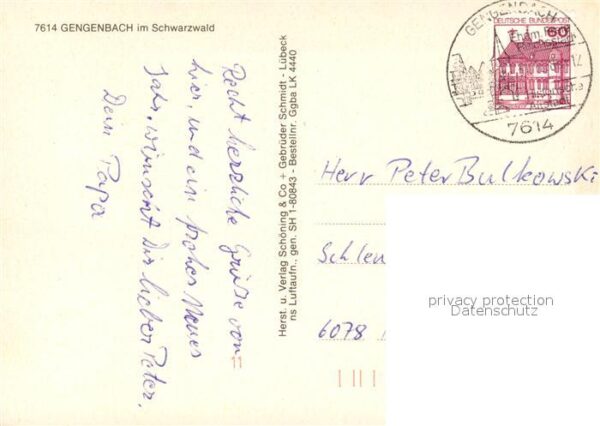 7614 GENGENBACH im Schwarzwald
Recht herzliche Grüße von
hier, und ein frohes Neues
Jahr, wünscht Dir lieber Peter,
Dein Papa
Herst. u. Verlag Schöning & Co + Gebrüder Schmidt - Lübeck
ns Luftaufn., gen. SH 1-80843 - Bestellnr. Ggba LK 4440
GENGENBACH
DEUTSCHE BUNDESPOST
60
Ehem.
7614
Herr Peter Bulkowski
Schleu
6078
privacy protection
Datenschutz